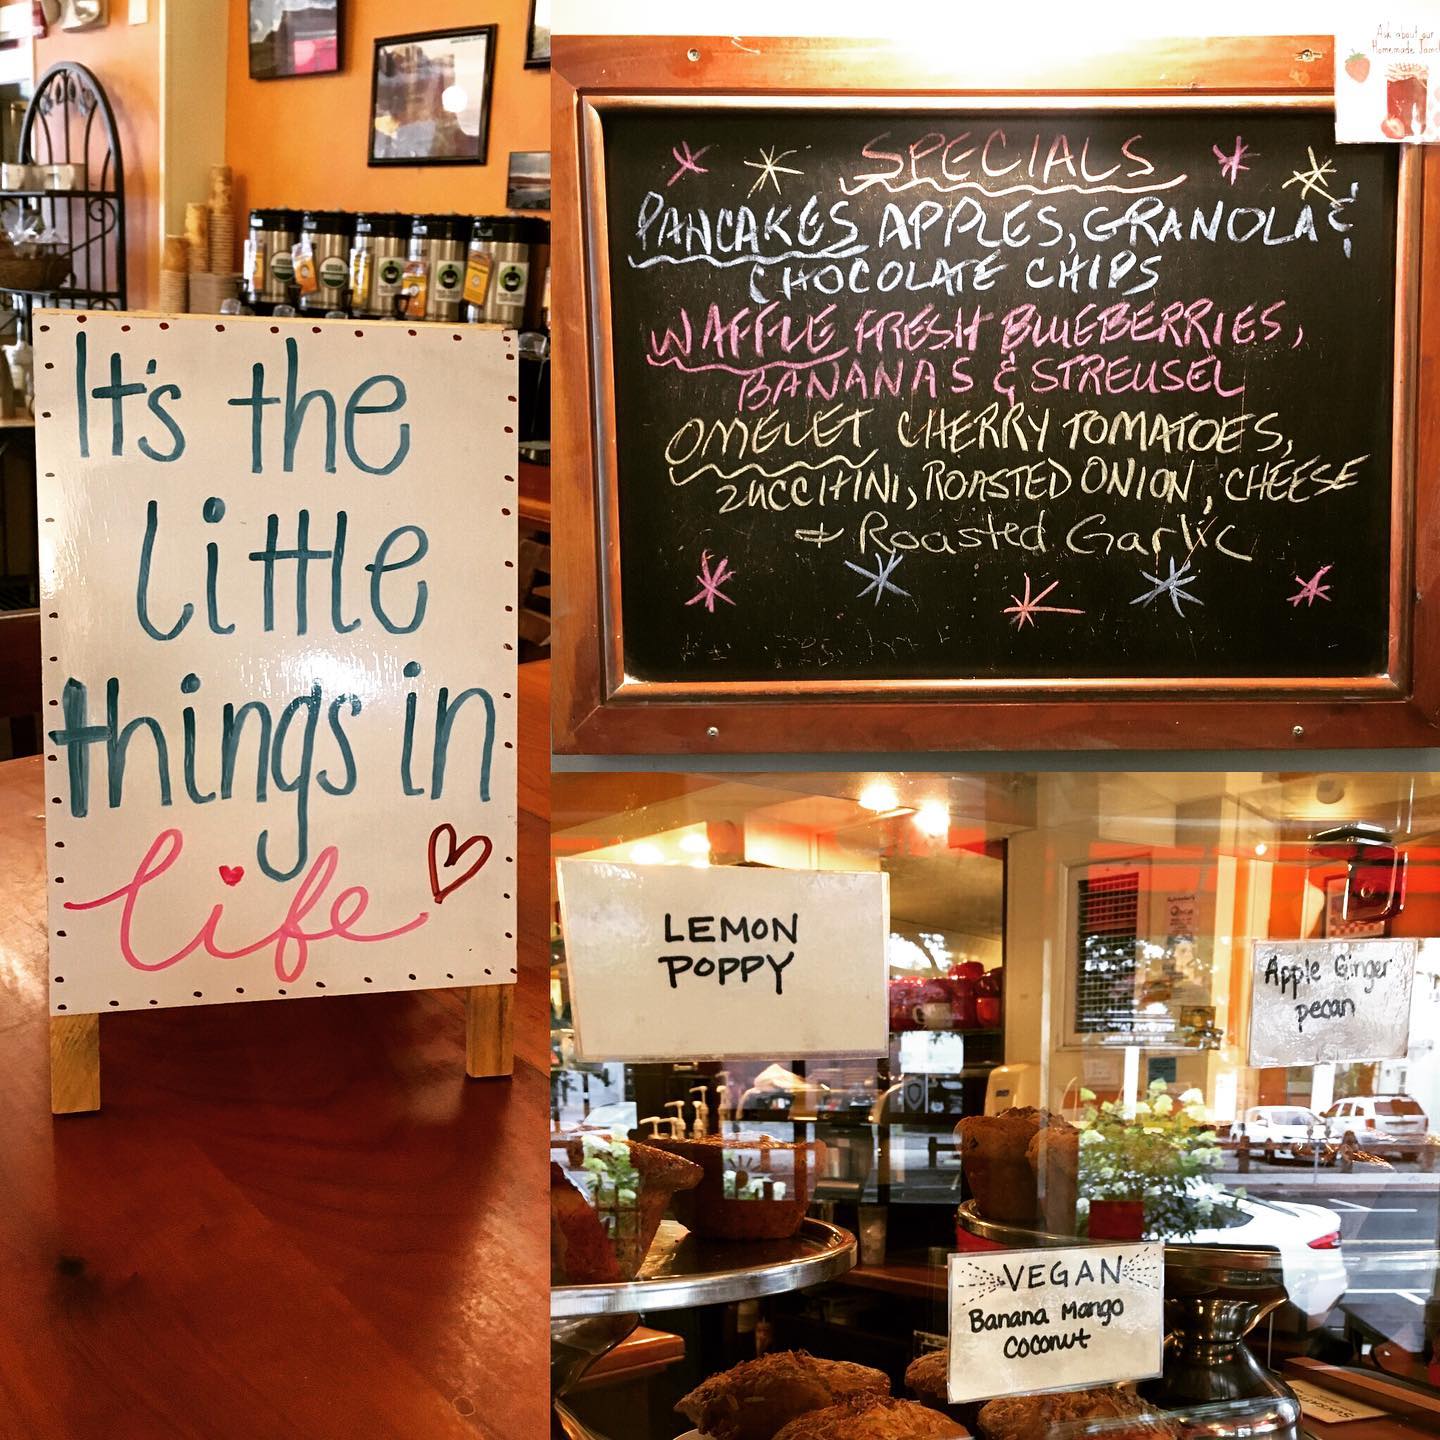 It's the
little
things in
life
Ask about our
Homemade Jams!
SPECIALS
PANCAKES APPLES, GRANOLA &
CHOCOLATE CHIPS
WAFFLE FRESH BLUEBERRIES,
BANANAS & STREUSEL
OMELET CHERRY TOMATOES,
ZUCCHINI, ROASTED ONION, CHEESE
+ Roasted Garlic
LEMON
POPPY
Apple Ginger
pecan
VEGAN
Banana Mango
Coconut